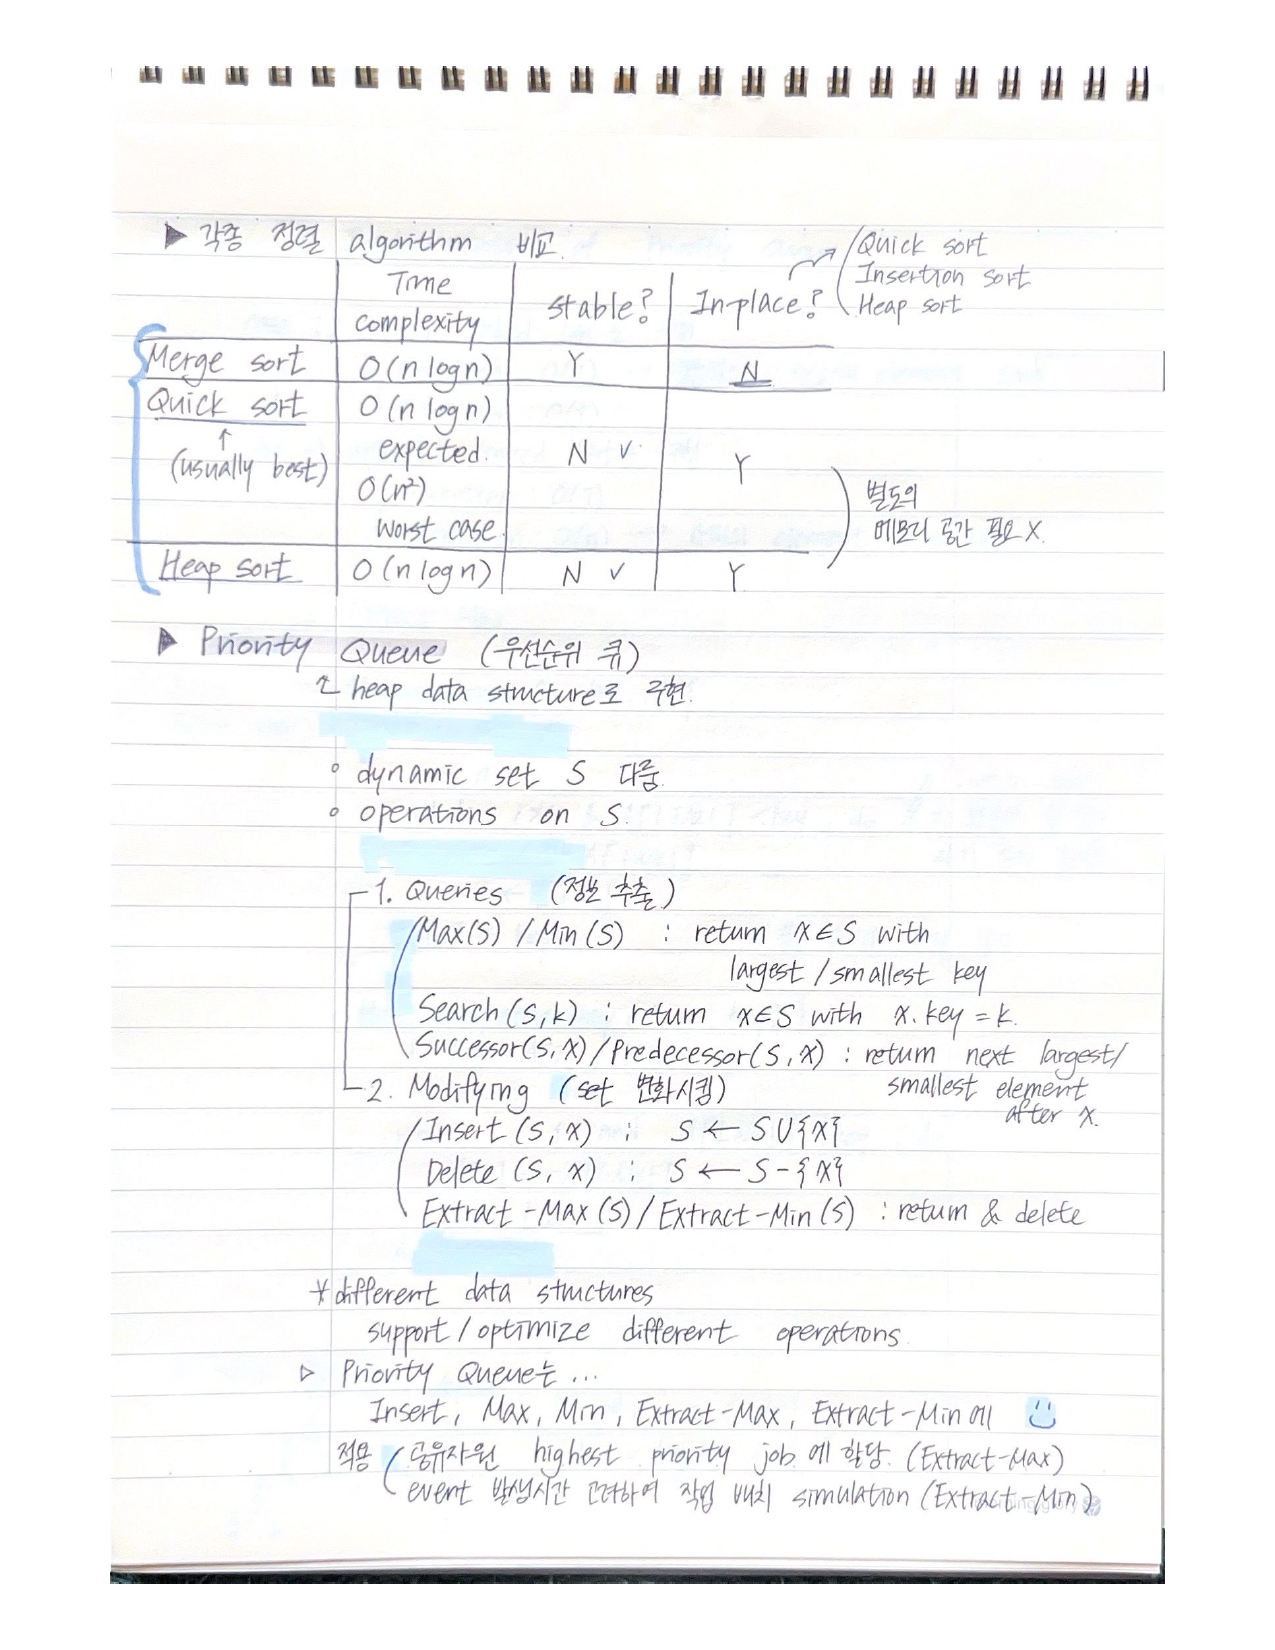 ▶ 각종 정렬 algorithm 비교
Time complexity
stable?
In-place?
Quick sort
Insertion sort
Heap sort
Merge sort O(n log n) Y N
Quick sort O(n log n)
↑
(usually best)
expected.
O(n²)
worst case.
N ✓
Y
별도의
메모리 공간 필요 X.
Heap sort O(n log n) N ✓ Y
▶ Priority Queue (우선순위 큐)
heap data structure로 구현.
∘ dynamic set S 다룸.
∘ operations on S.
1. Queries (정보 추출)
Max(S) / Min(S) : return x∈S with
largest / smallest key
Search(S,k) : return x∈S with x.key = k.
Successor(S,x)/Predecessor(S,x) : return next largest/
smallest element
after x.
2. Modifying (set 변화시킴)
Insert (S, x) : S ← S∪{x}
Delete (S, x) : S ← S-{x}
Extract-Max(S)/Extract-Min(S) : return & delete
* different data structures
support / optimize different operations.
▷ Priority Queue는 ...
Insert, Max, Min, Extract-Max, Extract-Min에
적용 공유자원 highest priority job에 할당. (Extract-Max)
event 발생시간 고려하여 작업 배치 simulation (Extract-Min)